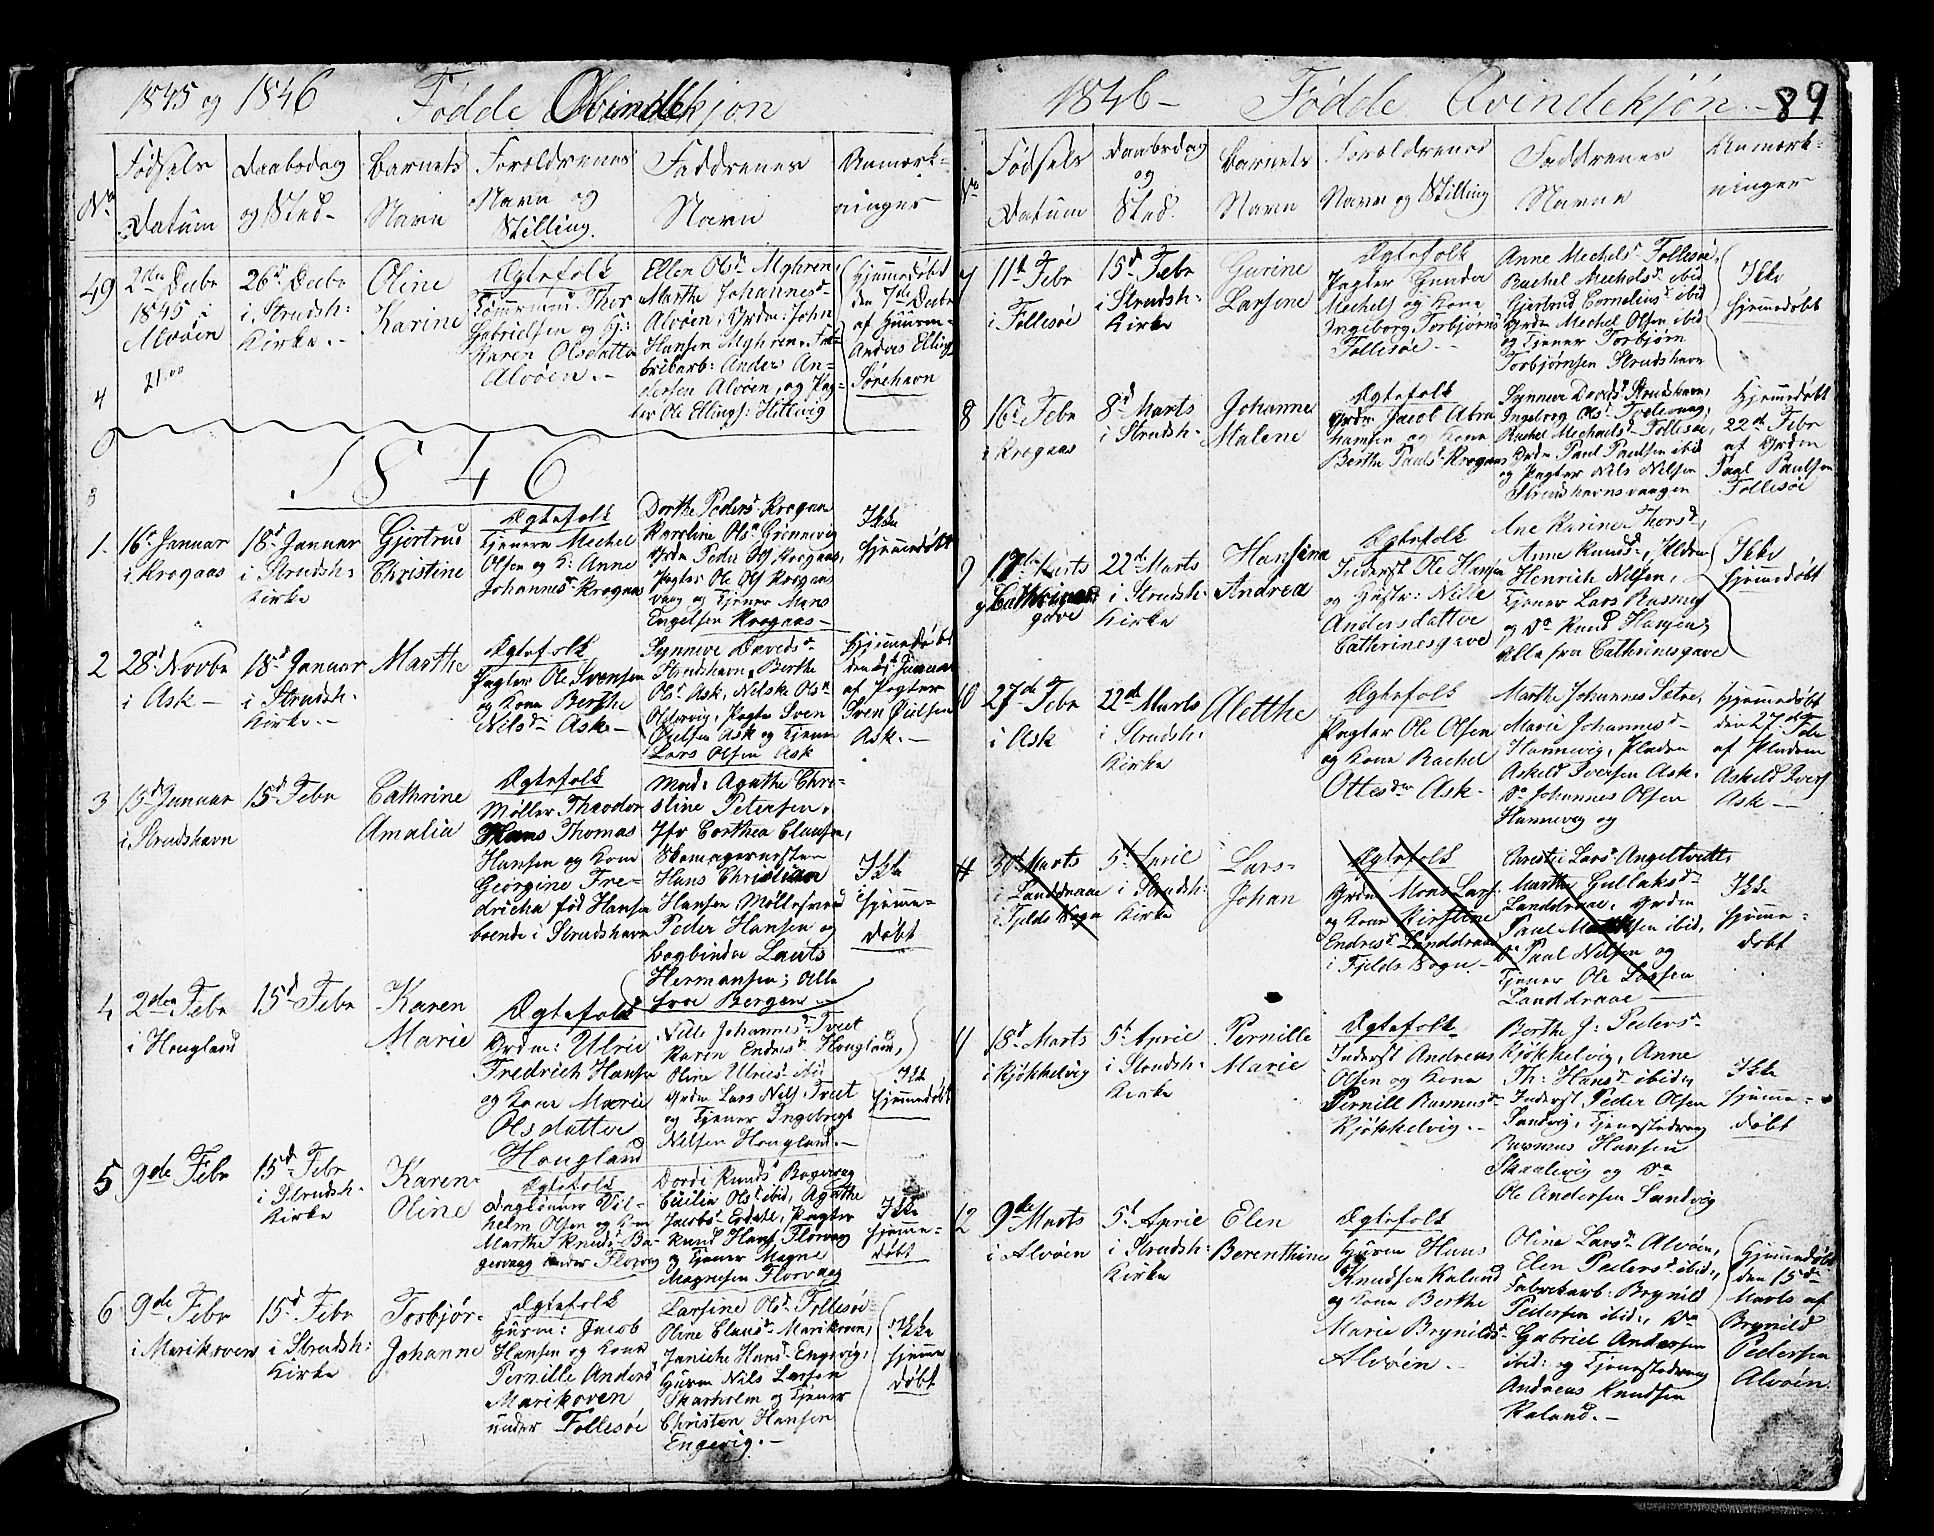 1845 og 1846 Fødde Qvindekjøn
No
Fødsels Datum
Daabsdag og Sted
Barnets Navn
Forældrenes Navn og Stilling.
Faddrenes Navn
Anmærkninger
49
2den Decbr
1845 i
Alvøen
26d Decbr
i Strudsh:
Kirke.-
Oline
Karine
Ægtefolk
Thor
Gabrielsen og
Karen Olsdatter
Alvøen.-
Ellen Olsd Myhren,
Marthe Johannesd
Alvøen, Grdm: John
Hansen Myhren, Fa-
brikarb: Anders An-
dersen Alvøen, og Pag-
ter Ole Ellings: Hillevig
Hjemmedøbt
den 7de Decbr
af Huusm-
Anders Ellings
Sørehavn
1846
1.
16d Januar
i Krogaas
18d Januar
i Strudsh:
Kirke
Gjertrud
Christine
Ægtefolk
Tjenere Mechel
Olsen og K: Anne
Johannesd Krogaas
Dorthe Pedersd Krogaas
Karoline Olsd Grønnevig
Grdm Peder Krogaas,
Pagter Ole Ols Krogaas
vaag og Tjener Mons
Engelsen Krogaas-
Ikke
hjemmedøbt
2
28d Novbr
i Ask -
18d Januar
i Strudsh:
Kirke.-
Marthe
Ægtefolk
Pagter Ole Svensen
og Kone Berthe
Nilsd Ask.-
Synneve Davidsd
Strudshavn, Berthe
Olsd Ask, Nilske Olsd
Oldervig, Pagter Sven
Ask og Tjener
Lars Olsen Ask
Hjemmedøbt
Januar
af Pagter
Sven
Ask.-
3
15d Januar
i Strudshavn
15d Febr
Cathrine
Amalia
Ægtefolk
Møller Theodor
Hans Thomas
Hansen og Kone
Georgine Fre-
dricha fød Hansen
boende i Strudshavn
Mad: Agathe Chri-
stine Petersen,
Jfr Dorthea Clausen,
Skomagermester
Hans Christian
Hansen Møllesvend
Peder Hansen og
Bogbinder Lauts
Hermansen; Alle
fra Bergen
Ikke
hjemme-
døbt
4
2den Febr
i Hougland
15d Febr
Karen
Marie
Ægtefolk
Grdm: Ulric
Fredrich Hansen
og Kone Marie
Olsdatter
Hougland
Nille Johannesd Tveet
Karen Endresd Hougland,
Oline Ulricsd ibid
Grdm Lars Nils: Tveet
og Tjener Ingebrigt
Nilsen Hougland.-
Ikke
hjemmedøbt
5
9de Febr
15d Febr
i Strudsh-
Kirke
Karen
Oline
Ægtefolk
Daglønner Vil-
helm Olsen og Kone
Marthe Knudsd Ba-
gervaag under Florvg
Dordi Knudsd Bagervaag
Cicilia Olsd ibid, Agathe
Jacobsd Erdahl, Pagter
Knud Hans Florvag
og Tjener Magne
Magnesen Florvaag
Ikke
hjemme-
døbt
6
9de Febr
i Marikoven
15d Febr
i Strudsh:
Kirke
Torbjør-
Johanne
Ægtefolk
Huusm: Jacob
Hansen og Kone
Pernille Andersd
Marikoven
under Follesøe
Larsine Olsd Follesøe
Oline Clausd Marikoven,
Janiche Hansd Engevig,
Huusm Nils Larsen
Skarholm og Tjener
Christen Hansen
Engevig.-
Ikke
hjemme
døbt
1846- Fødde Qvindekjøn.- 89
No
Fødsels Datum
Daabsdag og Sted.
Barnets Navn
Forældrenes Navn og Stilling
Faddrenes Navne
Anmærkninger
7
11t Febr
i Follesøe
15d Febr
i Strudsh:
Kirke
Gurine
Larsene
Ægtefolk
Pagter Gunder
Mechels og Kone
Ingeborg Torbjørnsd
Follesøe.-
Anne Mechelsd Follesøe,
Rachel Mechelsd ibid
Gjertrud Corneliusd ibid
Grdm Mechel Olsen ibid
og Tjener Torbjørn
Torbjørnsen Strudshavn
Ikke
hjemmedøbt
8
16d Febr
i Krogaas
8d Marts
i Strudsh-
Johanne
Malene
Ægtefolk
Grdm Jacob Abra
hamsen og Kone
Berthe Paulsd Krogaas
Synneve Davidsd Strudshavn,
Ingeborg Olsd
Rachel Mechaelsd Follesøe,
Grdm Paul Paulsen ibid
og Pagter Nils Nilsen
Strudshavnsvaagen
Hjemmedøbt
22d Febr
af Grdm
Paul Paulsen
Follesøe
9
Marts
Cathrines
gave
22d Marts
i Strudsh:
Kirke
Hansina
Andrea
Ægtefolk
Inderst Ole Hansen
og Hustr: Nille
Andersdatter
Cathrinesgave
Ane Karine Thorsd,
Anne Knudsd, Pladsm
Henrich Nilsen,
Tjener Lars Rasmus
og Do Knud
Alle fra Cathrinesgave
Ikke
hjemmedøbt
10
27de Febr
i Ask
22de Marts
i Strudsh:
Kirke
Aletthe
Ægtefolk
Pagter Ole Olsen
og Kone Rachel
Ottesdr Ask-
Marthe Johannes Setre,
Marie Johannesd
Hannevig, Pladsm
Askild Iversen Ask.
Do Johannes Olsen
Hannevig og
Hjemmedøbt
den 27de Febr
af Pladsm
Askild Ivers
Ask-
11
30d Marts
i Landdraae
i Fjelds Sogn
5t April
i Strudsh:
Kirke
Lars-
Johan
Ægtefolk
Grdm Mons Lars:
og Kone Kirstine
Endresd Landdraae
i Fjelds Sogn-
Christi Larsd Angeltveit,
Marthe Gullaksd
Landdraae, Grdm
Paul ibid,
Do Paul Nilsen og
Tjener Ole Larsen
Landdraae-
Ikke
hjemme-
døbt
11
18d Marts
i Kjøkkelvig
5t April
i Strudsh:
Kirke
Pernille
Marie
Ægtefolk
Inderst Andreas
Olsen og Kone
Pernill Rasmusd
Kjøkkelvig.-
Berthe J: Pedersd
Kjøkkelvig, Anne
Th: Hansd ibid,
Inderst Peder Olsen
Sandvig, Tjenestedreng
Rasmus Hansen
Skaalevig og Do
Ole Andersen Sandvig
Ikke
hjemme-
døbt
12
9de Marts
i Alvøen
5t April
i Strudsh:
Kirke
Elen
Berenthine
Ægtefolk
Huusm Hans
Knudsen Kaland
og Kone Berthe
Marie Brynildsd
Alvøen.-
Oline Larsd Alvøen,
Elen Pedersd ibid,
Fabrikarb: Brynild
Pedersen ibid, Do
Gabriel Andersen
ibid: og Tjenestedreng
Andreas Knudsen
Kaland.-
Hjemmedøbt
den 15d
Marts af
Brynild
Pedersen
Alvøen